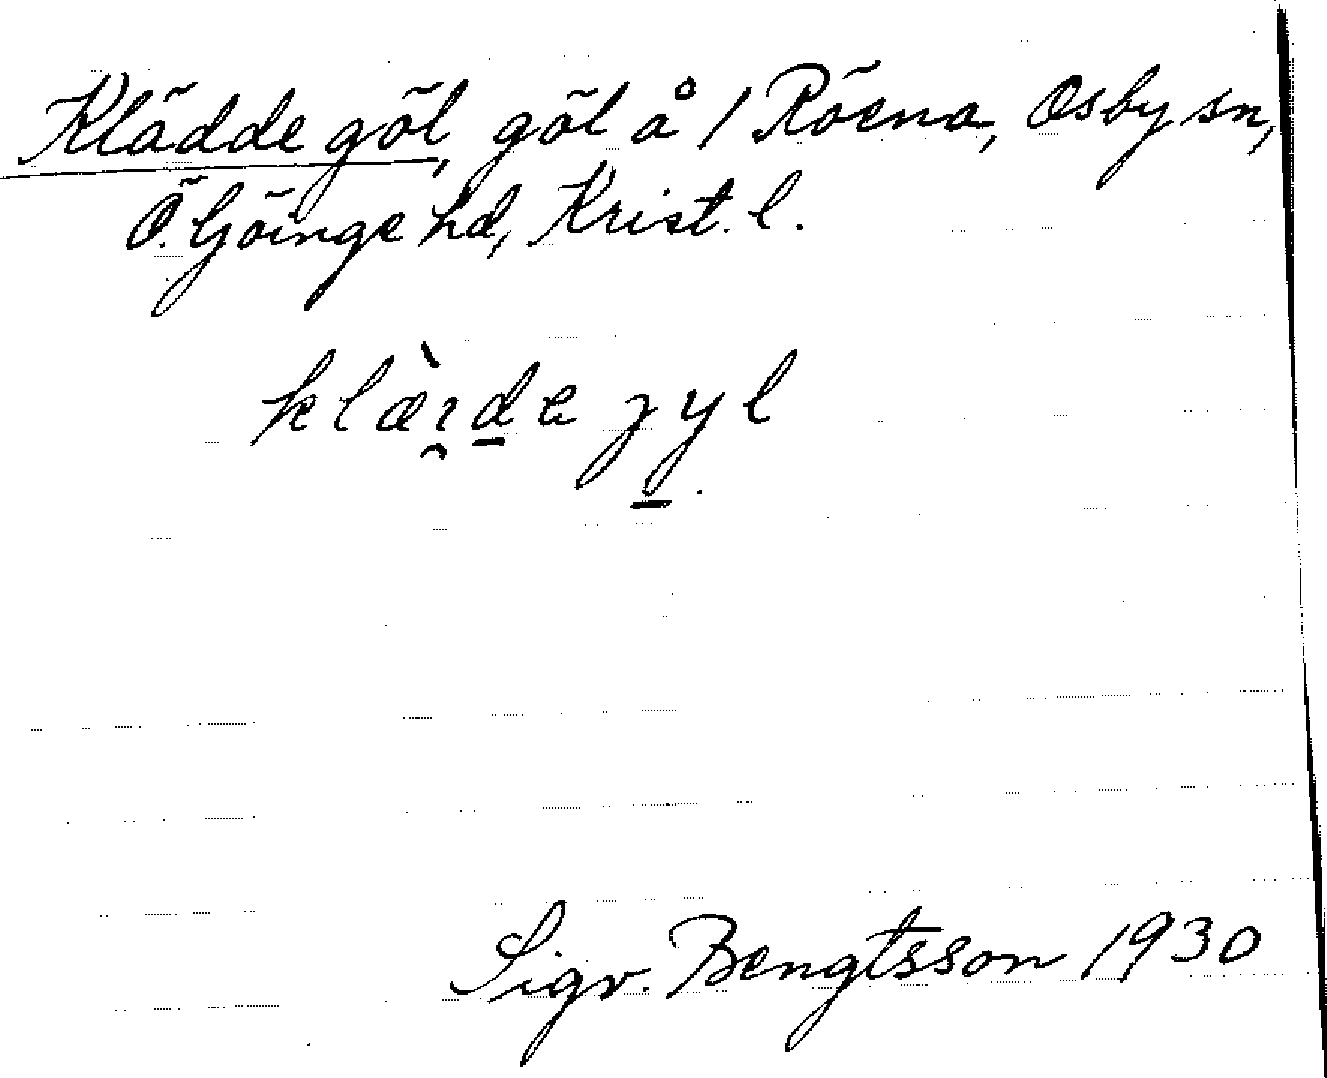 Klädde göl, göl å 1 Röena, Osby sn,
Ö. Göinge hd, Krist. l.
klæ̀ɪ̯de jyl
Sigv. Bengtsson 1930